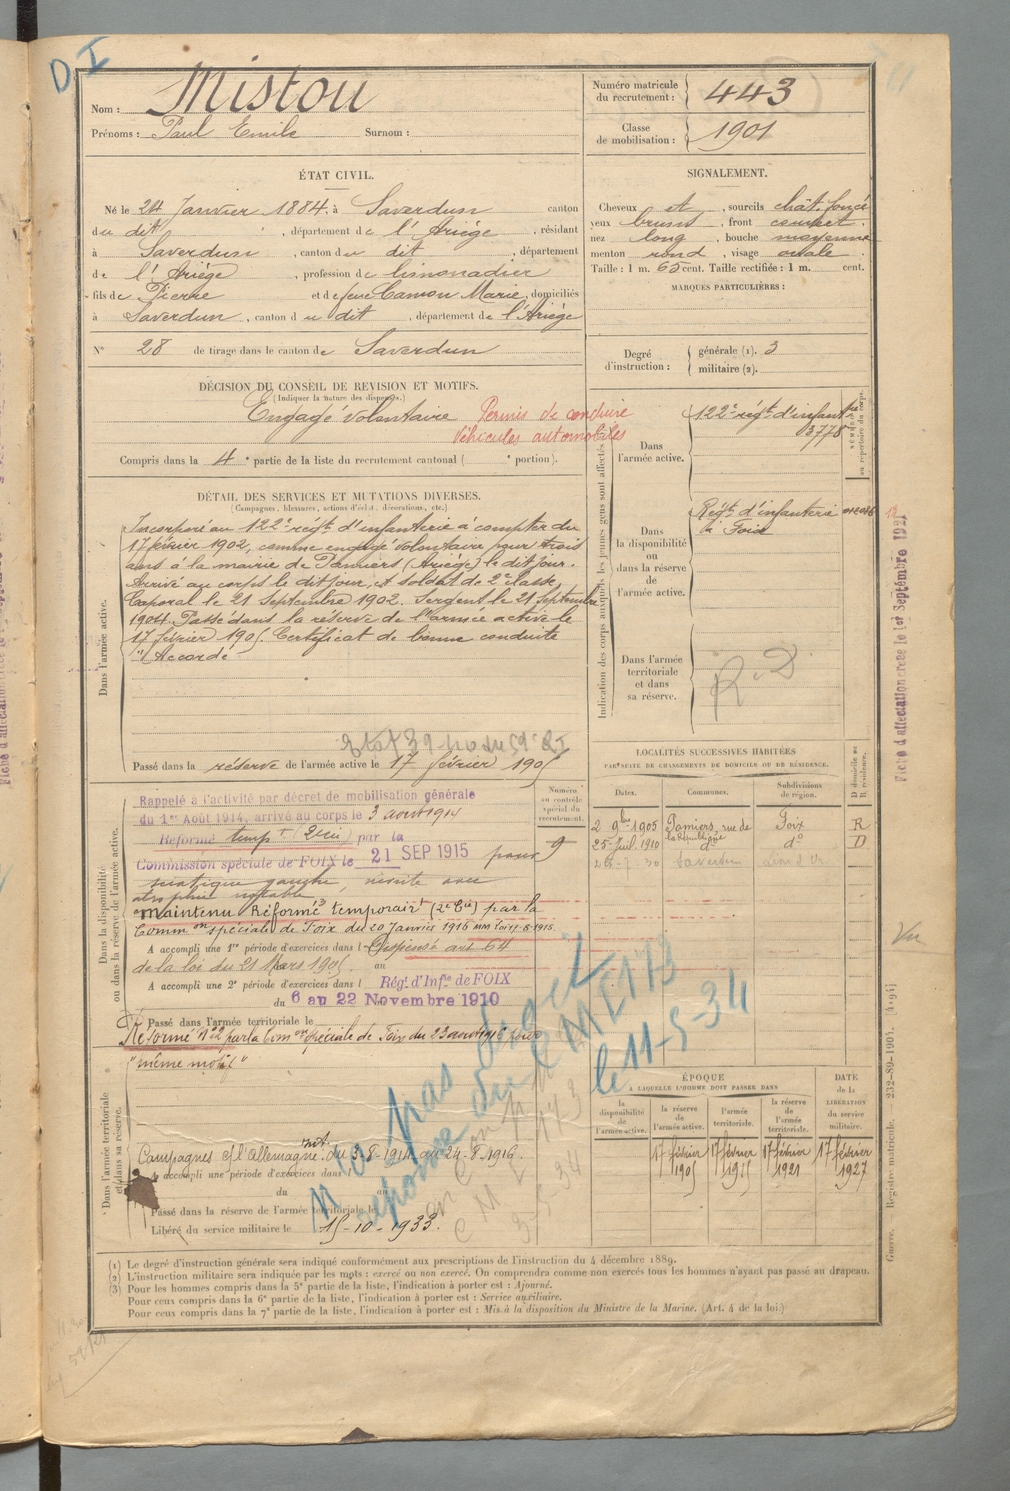 D I
Nom : Mistou
Prénoms : Paul Emile Surnom :
Numéro matricule du recrutement : 443
Classe de mobilisation : 1901
ÉTAT CIVIL.
Né le 24 Janvier 1884, à Saverdun canton
du dit , département de l'Ariège , résidant
à Saverdun , canton du dit , département
de l'Ariège , profession de limonadier
fils de Pierre et de feue Camon Marie, domiciliés
à Saverdun , canton du dit , département de l'Ariège
N° 28 de tirage dans le canton de Saverdun
SIGNALEMENT.
Cheveux et , sourcils chât. foncé
yeux bruns , front
nez long , bouche moyenne
menton rond , visage ovale
Taille : 1 m. 63 cent. Taille rectifiée : 1 m. cent.
MARQUES PARTICULIÈRES :
Degré d'instruction : générale (1). 3
militaire (2).
DÉCISION DU CONSEIL DE REVISION ET MOTIFS.
(Indiquer la nature des dispenses.)
Engagé volontaire Permis de conduire
véhicules automobiles
Compris dans la 4e partie de la liste du recrutement cantonal ( e portion).
DÉTAIL DES SERVICES ET MUTATIONS DIVERSES.
(Campagnes, blessures, actions d'éclat, décorations, etc.)
Dans l'armée active.
Incorporé au 122e régt d'infanterie à compter du
17 février 1902, comme engagé volontaire pour trois
ans à la mairie de Pamiers (Ariège) le dit jour.
Arrivé au corps le dit jour, et soldat de 2e classe,
Caporal le 21 Septembre 1902. Sergent le 21 Septembre
1904. Passé dans la réserve de l'armée active le
17 février 1905. Certificat de bonne conduite
"Accordé"
Passé dans la réserve de l'armée active le 17 février 1905
Indication des corps auxquels les jeunes gens sont affectés.
Dans l'armée active. 122e régt d'infanterie
3778
NUMÉROS au répertoire du corps.
Dans la disponibilité ou dans la réserve de l'armée active. Régt d'infanterie
à Foix
Dans l'armée territoriale et dans sa réserve. R. D
LOCALITÉS SUCCESSIVES HABITÉES
PAR SUITE DE CHANGEMENTS DE DOMICILE OU DE RÉSIDENCE.
Dates. Communes. Subdivisions de région. D domicile ou R résidence.
2 9bre 1905 Pamiers, rue de la République Foix R
25 Juil. 1910 d° d° D
Saverdun
Dans la disponibilité ou dans la réserve de l'armée active.
Numéro au contrôle spécial du recrutement.
9
Rappelé à l'activité par décret de mobilisation générale
du 1er Août 1914, arrivé au corps le 3 août 1914
Réformé tempt (2 ) par la
Commission spéciale de FOIX le 21 SEP 1915 pour
sciatique gauche, névrite avec
atrophie notable
Maintenu Réformé temporairt (2e Cie) par la
Common spéciale de Foix du 20 Janvier 1916
A accompli une 1re période d'exercices dans l Dispensé art 64
de la loi du 21 Mars 1905. au
A accompli une 2e période d'exercices dans l Régt. d'Infie de FOIX
du 6 au 22 Novembre 1910
Passé dans l'armée territoriale le
Réformé n° 2 par la Comon spéciale de Foix du 23 août 1916 pour
"même motif"
Dans l'armée territoriale et dans sa réserve.
Campagnes et l'Allemagne: du 3-8-1914 au 24-8-1916.
A accompli une période d'exercices dans
du au
Passé dans la réserve de l'armée territoriale le
Libéré du service militaire le 15-10-1933.
N'a pas
réponse du CMI 173
le 11-5-34
ÉPOQUE
A LAQUELLE L'HOMME DOIT PASSER DANS
la disponibilité de l'armée active. la réserve de l'armée active. l'armée territoriale. la réserve de l'armée territoriale.
DATE de la LIBÉRATION du service militaire.
17 février 1905 17 février 1915 17 février 1921 17 février 1927
(1) Le degré d'instruction générale sera indiqué conformément aux prescriptions de l'instruction du 4 décembre 1889.
(2) L'instruction militaire sera indiquée par les mots : exercé ou non exercé. On comprendra comme non exercés tous les hommes n'ayant pas passé au drapeau.
(3) Pour les hommes compris dans la 5e partie de la liste, l'indication à porter est : Ajourné.
Pour ceux compris dans la 6e partie de la liste, l'indication à porter est : Service auxiliaire.
Pour ceux compris dans la 7e partie de la liste, l'indication à porter est : Mis à la disposition du Ministre de la Marine. (Art. 4 de la loi.)
Fiche d'affectation créée le 1er Septembre 1921
Vu
Guerre. — Registre matricule. — 232-89-1904. [4494]